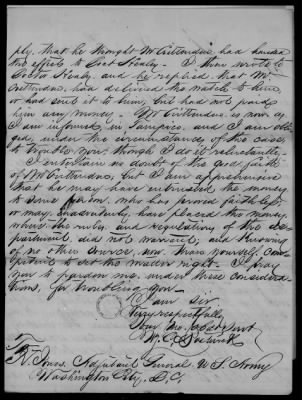 ply, that he thought Mr Crittenden had handed
the effects to Capt Healy. I then wrote to
Healy, and he replied, that Mr
Crittenden, had delivered the watch to him
or had sent it to him, but had not paid
him any money. Mr Crittenden is now, as
I am informed, in , and I am obli-
ged, under the circumstances of the case,
to trouble you though I do it reluctantly.
I entertain no doubt of the good faith
of Mr Crittenden, but I am apprehensive
that he may have entrusted the money
to some person, who has proved faithless
or may, inadvertently, have placed the money,
where the rules, and regulations of the de-
partment did not warrant; and knowing
of no other source, now, than yourself, com-
petent to set the matter right. I pray
you to pardon me, under these considera-
tions, for troubling you.
I am Sir
Very respectfully
Your Obdt Servt
W. C.
To
R. Jones, Adjutant General U S Army
Washington City, D.C.